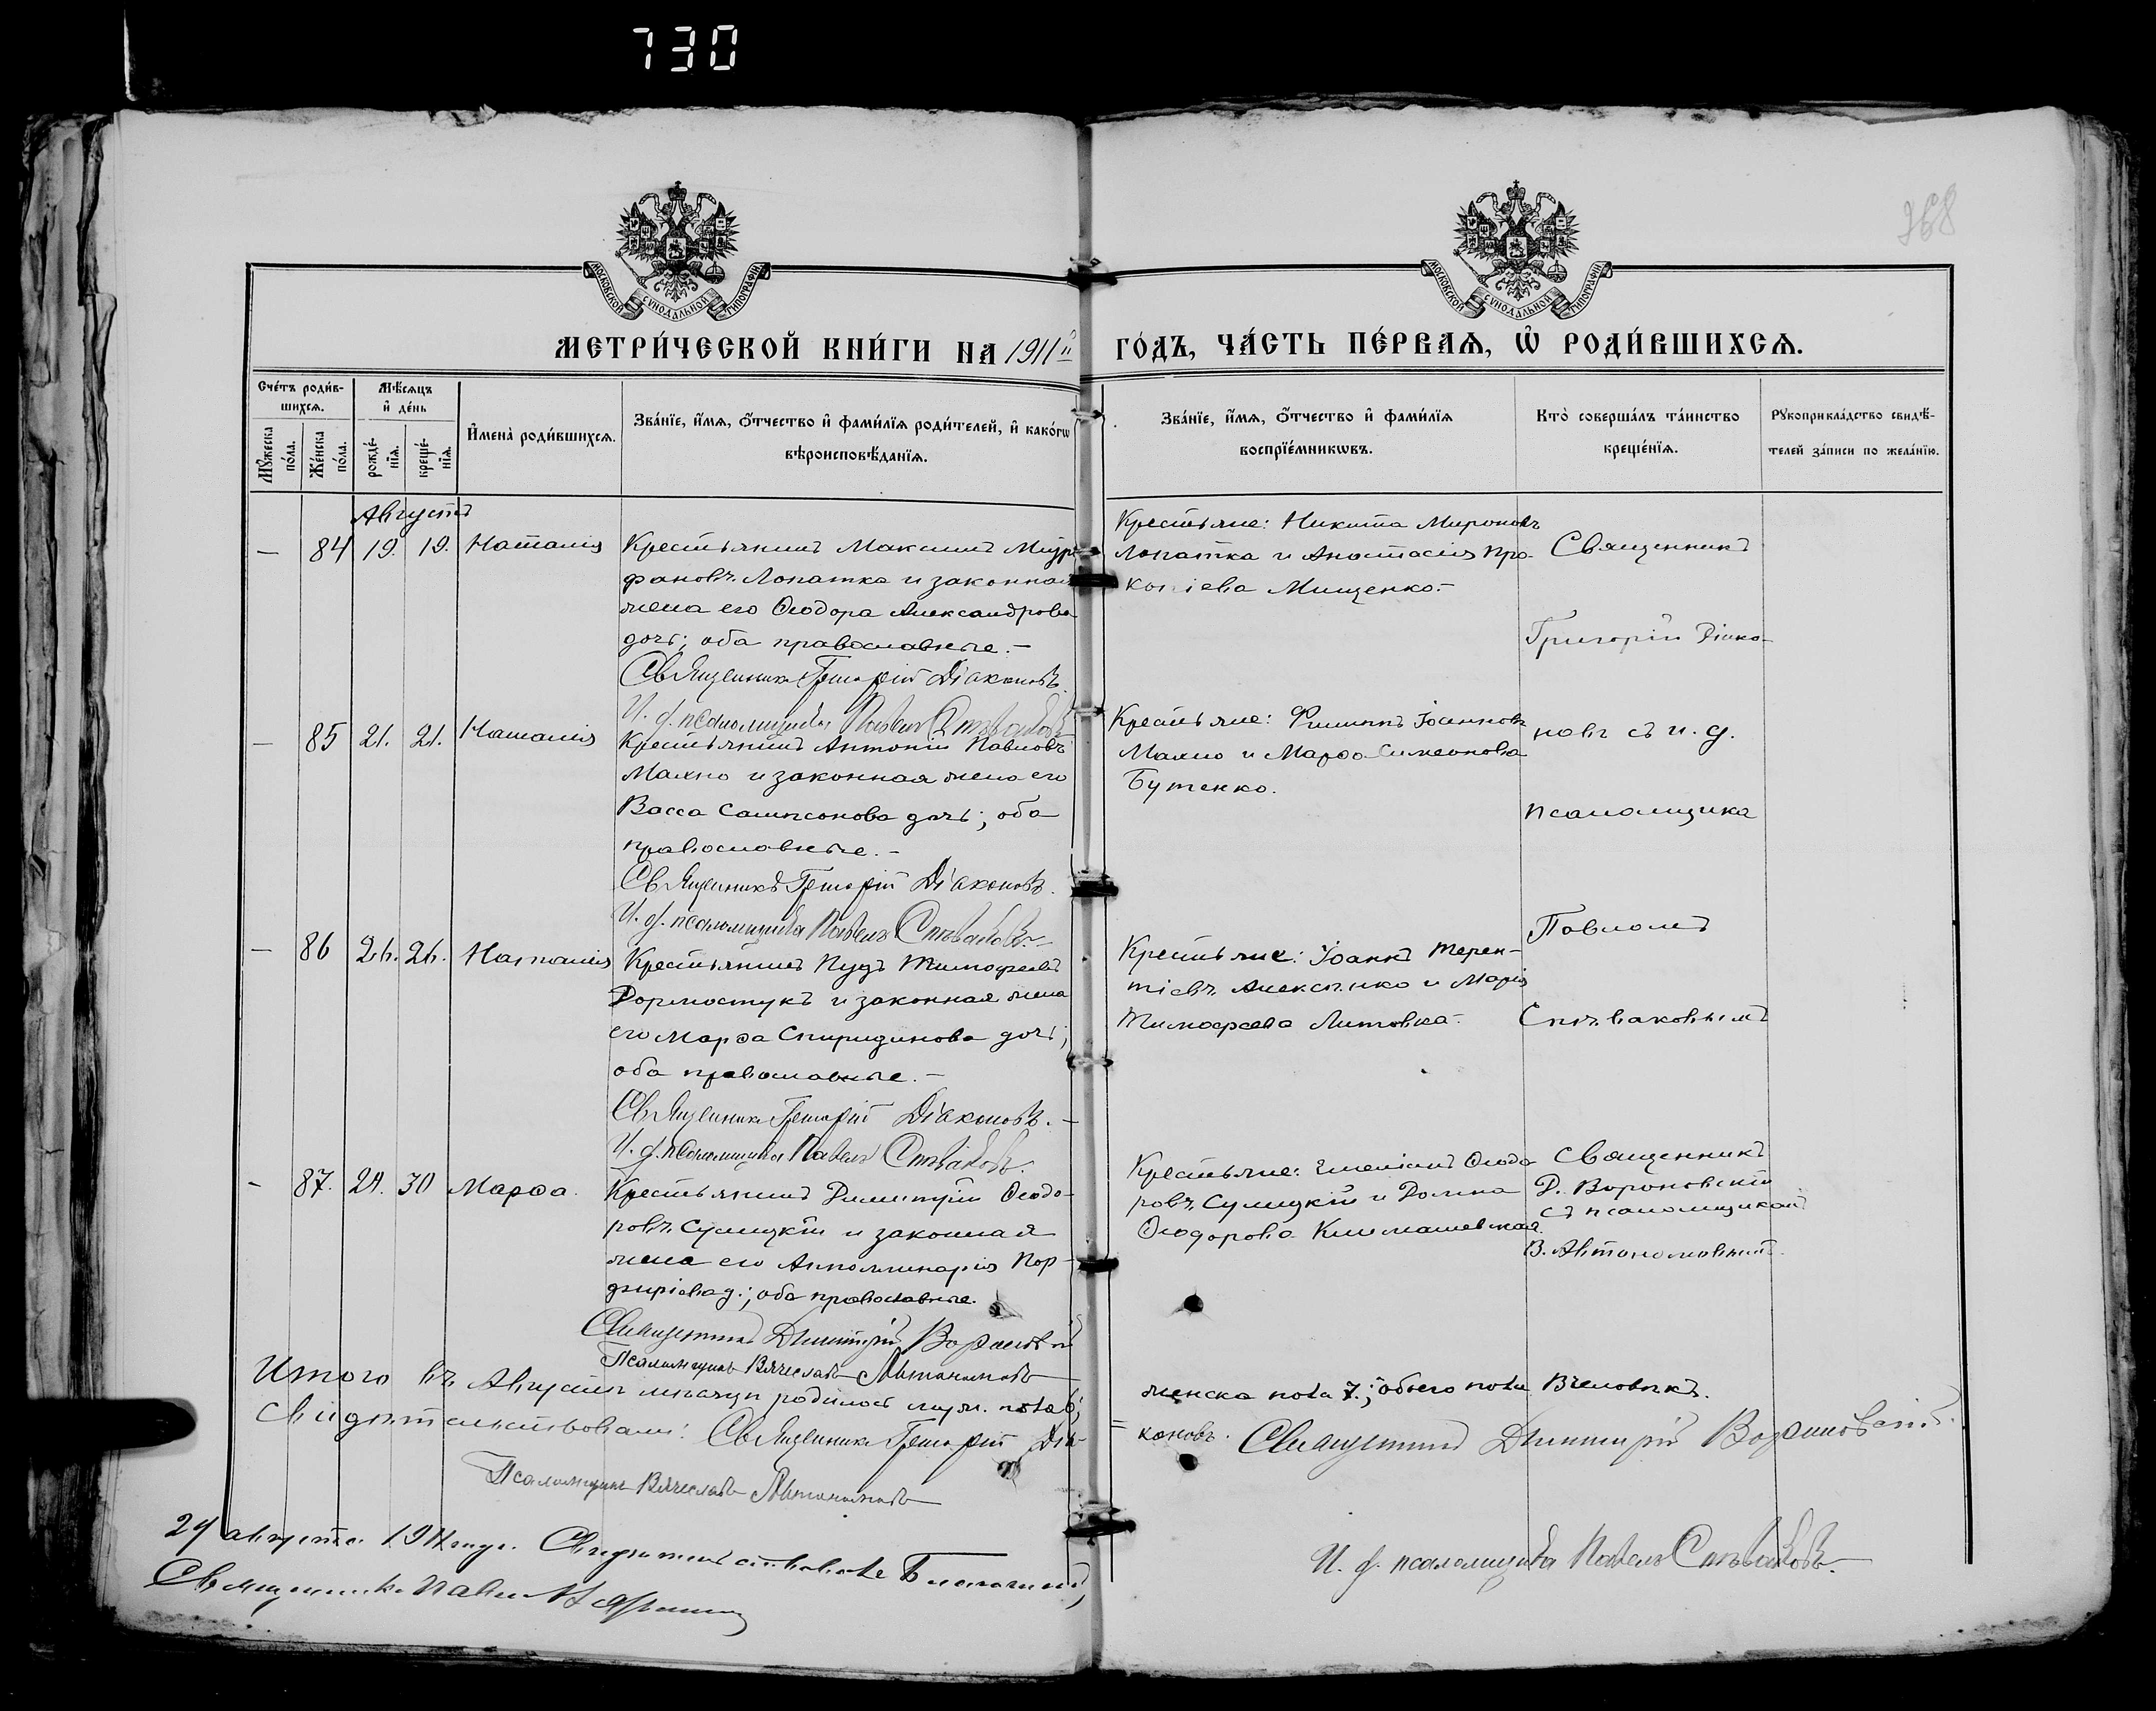 730
368
МОСКОВСКОЙ СѴНОДАЛЬНОЙ ТИПОГРАФІИ
МОСКОВСКОЙ СѴНОДАЛЬНОЙ ТИПОГРАФІИ
МЕТРИ́ЧЕСКОЙ КНИ́ГИ НА 1911й ГО́ДЪ, ЧА́СТЬ ПЕ́РВАѦ, Ѡ҆ РОДИ́ВШИХСѦ.
Сче́тъ роди́в-
шихсѧ.
Мѣ́сѧцъ
и҆ де́нь
Мꙋ́жеска
по́ла.
Же́нска
по́ла.
рожде́-
нїѧ.
креще́-
нїѧ.
И҆мена̀ роди́вшихсѧ.
Зва́нїе, и҆́мѧ, ѻ҆́тчество и҆ фами́лїѧ роди́телей, и҆ како́гѡ
вѣроисповѣ́данїѧ.
Зва́нїе, и҆́мѧ, ѻ҆́тчество и҆ фами́лїѧ
воспрїе́мникѡвъ.
Кто̀ соверша́лъ та́инство
креще́нїѧ.
Рꙋкоприкла́дство свидѣ́-
телей за́писи по жела́нїю.
Августъ
— 84 19. 19. Наталія
Крестьянинъ Максимъ
фановъ Лопатка и законная
жена его Ѳеодора Александрова
дочь; оба православные.-
Священникъ Григорій Діаконовъ.
И. д. псаломщика Павелъ Спѣваковъ
Крестьяне: Никита Мироновъ
Лопатка и Анастасія Про-
копіева Мищенко.-
Священникъ
Григорій Діако-
— 85 21. 21. Наталія
Крестьянинъ Антоній Павловъ
Махно и законная жена его
Васса Сампсонова дочь; оба
православные.-
Священникъ Григорій Діаконовъ.
И. д. псаломщика Павелъ Спѣваковъ.-
Крестьяне: Филиппъ Іоанновъ
Махно и Марѳа Симеонова
Бутенко.
новъ съ и. д.
псаломщика
— 86 26. 26. Наталія
Крестьянинъ Пудъ Тимофеевъ
Дормостукъ и законная жена
его Марѳа Спиридинова дочь;
оба православные.-
Священникъ Григорій Діаконовъ.-
И. д. псаломщика Павелъ Спѣваковъ.
Крестьяне: Іоаннъ Терен-
тіевъ Алексенко и Марія
Тимофеева Литовка.-
Павломъ
Спѣваковымъ
- 87. 29. 30 Марѳа.
Крестьянинъ Димитрій Ѳеодо-
ровъ Сулицкій и законная
жена его Апполлинарія Пор-
фиріева д.; оба православные.
Священникъ Димитрій Вороновскій
Псаломщикъ Вячеславъ Автономовъ
Крестьяне: Емеліанъ Ѳеодо-
ровъ Сулицкій и Домна
Ѳеодорова Климашевская
Священникъ
Д. Вороновскій
съ псаломщикомъ
В. Автономовымъ.
Итого въ Августѣ мѣсяцѣ родилось муж. пола 6;
женска пола 7.; обоего пола 13 человѣкъ.
Свидѣтельствовали: Священникъ Григорій Діа-
коновъ. Священникъ Димитрій Вороновскій.
Псаломщикъ Вячеславъ Автономовъ
И. д. псаломщика Павелъ Спѣваковъ.
29 августа 1911 года. Свидѣтельствовалъ Благочинный,
Священникъ Павелъ